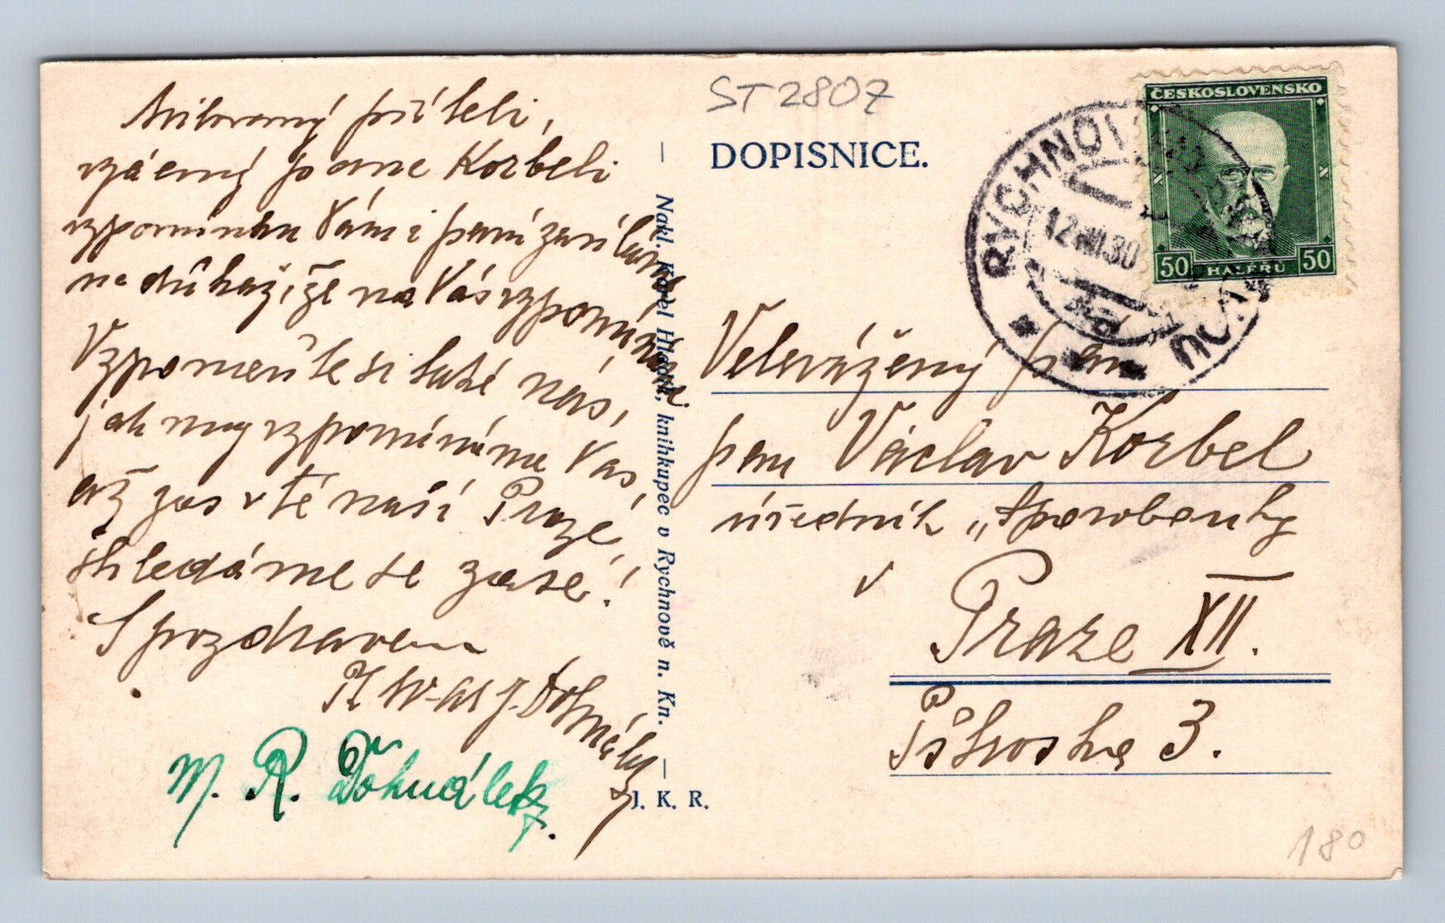 Milovaný příteli,
vzácný pane Korbeli
vzpomínku Vám i paní zasíláme
na důkaz, že na Vás vzpomínáme
Vzpomeňte si také nás,
jak my vzpomínáme Vás,
až zas v té naší Praze
shledáme se zase!
S pozdravem
M. R. Dohnálek
Nakl. Karel Hlaváč, knihkupec v Rychnově n. Kn.
J. K. R.
ST2807
DOPISNICE.
ČESKOSLOVENSKO
50 HALÉŘŮ 50
RYCHNOV NAD KNĚŽNOU
12.VIII.30
Velevážený pan
pan Václav Korbel
úředník „Sporobanky
v
Praze XII.
3.
180